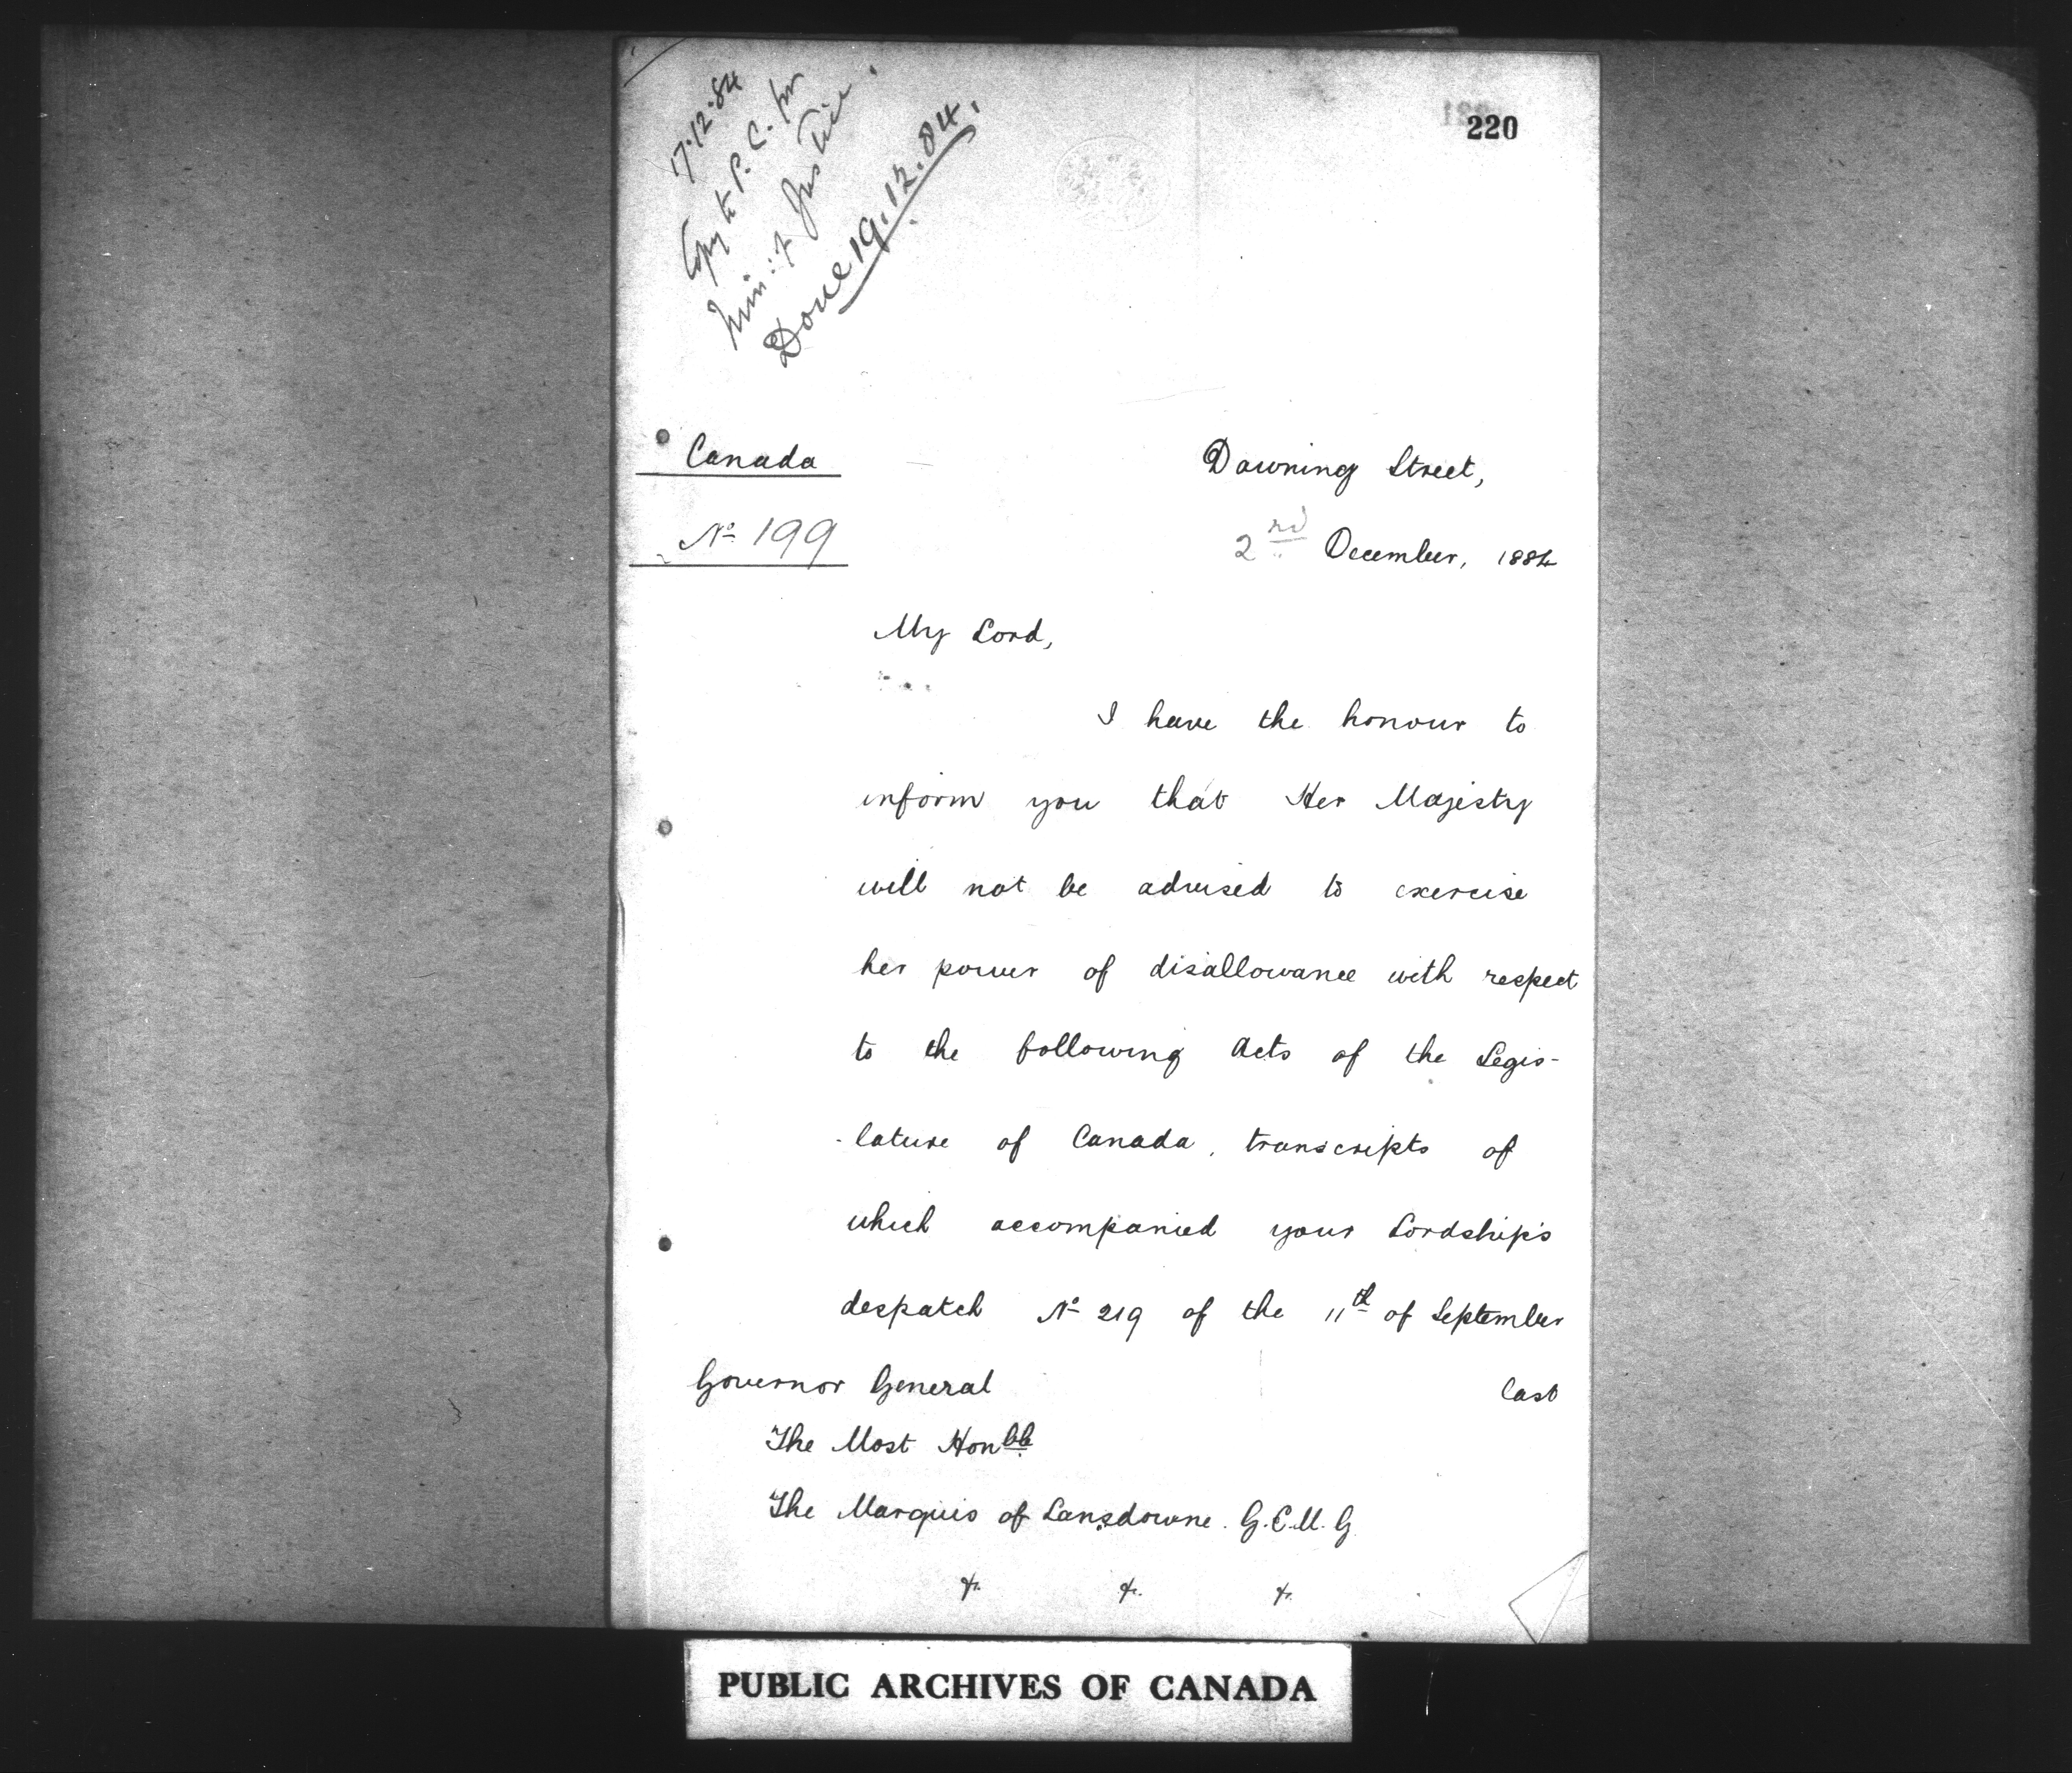 17.12.84
Copy to P. C. for
Min: of Justice.
Done 19.12.84.
220
Canada
Downing Street,
No 199
2nd December, 1884
My Lord,
I have the honour to
inform you that Her Majesty
will not be advised to exercise
her power of disallowance with respect
to the following Acts of the Legis-
-lature of Canada, transcripts of
which accompanied your Lordship's
despatch No 219 of the 11th of September
last
Governor General
The Most Honble
The Marquis of Lansdowne. G.C.M.G.
&c. &c. &c.
PUBLIC ARCHIVES OF CANADA